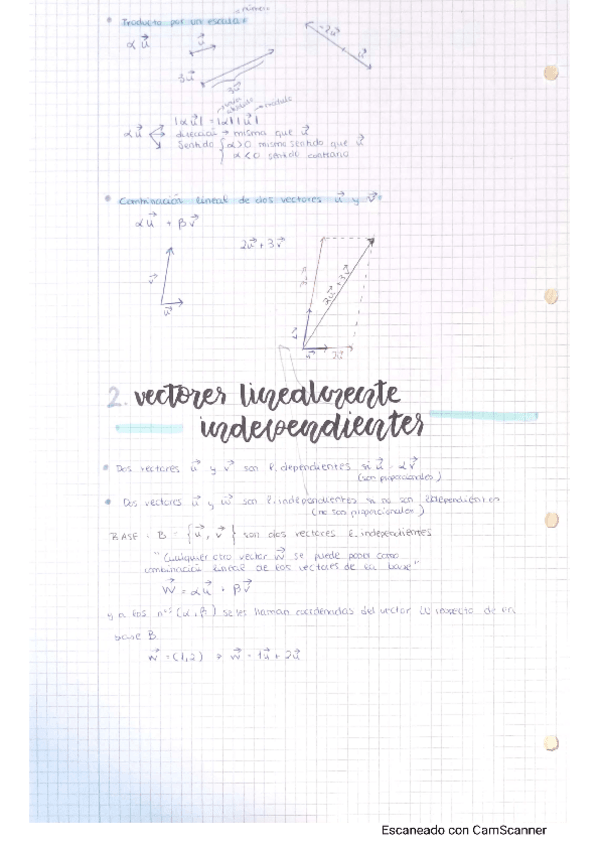 número
Producto por un escalar
α u⃗
u⃗
-2u⃗
u⃗
3u⃗
3u⃗
valor absoluto
módulo
|α u⃗| = |α| |u⃗|
α u⃗
dirección → misma que u⃗
Sentido { α>0 mismo sentido que u⃗
α<0 sentido contrario
Combinación lineal de dos vectores u⃗ y v⃗
α u⃗ + β v⃗
2u⃗ + 3v⃗
v⃗
u⃗
2u⃗ + 3v⃗
v⃗
u⃗
2u⃗
2. vectores linealmente
independientes
Dos vectores u⃗ y v⃗ son l. dependientes si u⃗ = αv⃗
(son proporcionales)
Dos vectores u⃗ y w⃗ son l. independientes si no son l. dependientes
(no son proporcionales)
BASE: B = {u⃗, v⃗} son dos vectores l. independientes
"Cualquier otro vector w⃗ se puede poner como
combinación lineal de los vectores de la base"
w⃗ = αu⃗ + βv⃗
y a los nºs (α, β) se les llaman coordenadas del vector w⃗ respecto de la
base B.
w⃗ = (1,2) → w⃗ = 1u⃗ + 2u⃗
Escaneado con CamScanner